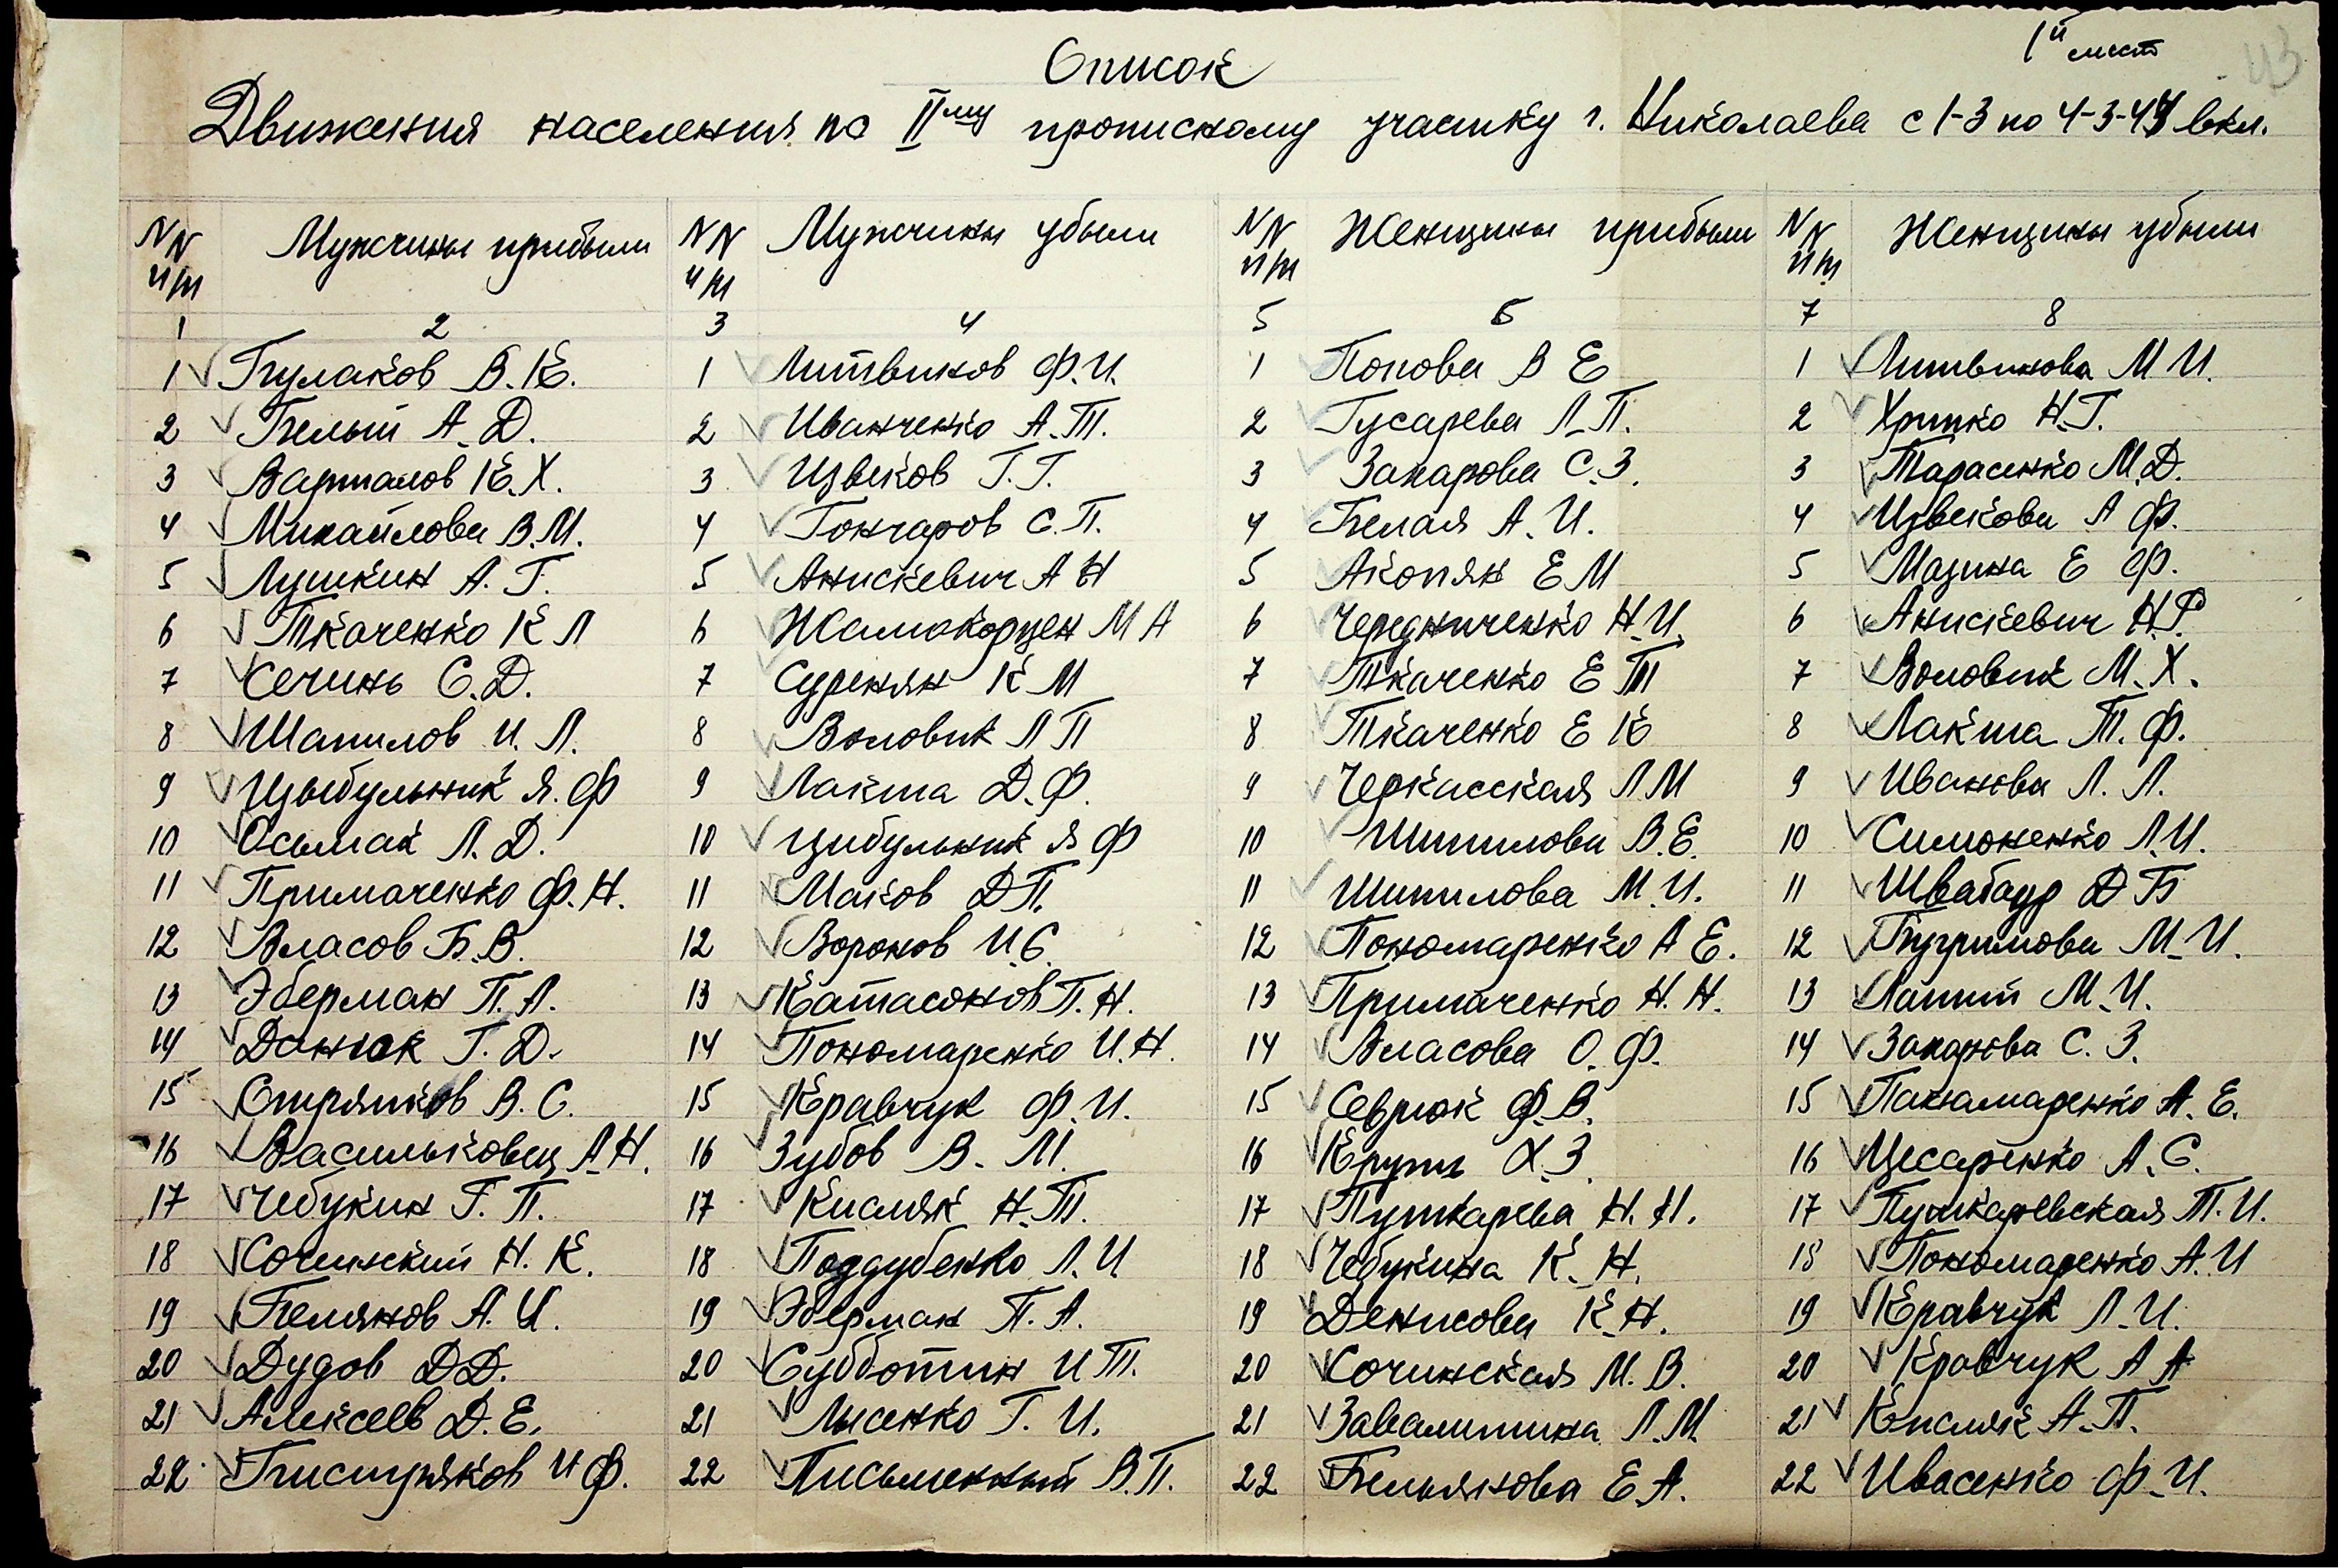 1й лист
43
Список
Движения населения по IIму прописному участку г. Николаева с 1-3 по 4-3-44 вкл.
NN п/п Мужчины прибыли NN п/п Мужчины убыли NN п/п Женщины прибыли NN п/п Женщины убыли
1 2 3 4 5 6 7 8
1 Булаков В.К. 1 Литвинов Ф.И. 1 Попова В Е 1 Литвинова М И.
2 Белый А.Д. 2 Иванченко А.Т. 2 Гусарева Л.П. 2 Хрипко Н.Г.
3 Варталов К.Х. 3 Извеков Г.Г. 3 Захарова С.З. 3 Тарасенко М.Д.
4 Михайлова В.М. 4 Гончаров С.П. 4 Белая А.И. 4 Извекова А Ф.
5 Лушкин А.Г. 5 Анискевич А Н 5 Акопян Е М 5 Мазина Е Ф.
6 Ткаченко К Л 6 Жамакорцен М А 6 Чередниченко Н.И. 6 Анискевич Н.Р.
7 Сечинь С.Д. 7 Суренян К М 7 Ткаченко Е Т 7 Воловик М.Х.
8 Шапилов И.Л. 8 Воловик Л П 8 Ткаченко Е К 8 Лакта Т.Ф.
9 Цыбульник Я.Ф 9 Лакта Д.Ф. 9 Черкасская Л.М 9 Иванова Л.Л.
10 Осьмак Л.Д. 10 Цибульник Я Ф 10 Шипилова В.Е. 10 Симоненко Л.И.
11 Примаченко Ф.Н. 11 Маков Д П. 11 Шипилова М.И. 11 Швабаур Д Б
12 Власов Б.В. 12 Воронов И.С. 12 Пономаренко А Е. 12 Бугримова М.И.
13 Эберман П.А. 13 Катасонов П.Н. 13 Примаченко Н.Н. 13 Лапий М.И.
14 Данюк Г.Д. 14 Пономаренко И.Н. 14 Власова О.Ф. 14 Захарова С.З.
15 Отряпков В.С. 15 Кравчук Ф.И. 15 Севрюк Ф.В. 15 Панамаренко А.Е.
16 Васильковец А.Н. 16 Зубов В.М. 16 Круть Х.З. 16 Цесаренко А.С.
17 Чебукин Г.П. 17 Кисляк Н.Т. 17 Пушкарева Н.Н. 17 Пушкаревская Т.И.
18 Сочинский Н.К. 18 Поддубенко Л.И 18 Чебукина К.Н. 18 Пономаренко А.И
19 Белянов А.И. 19 Эберман П.А. 19 Денисова К.Н. 19 Кравчук Л.И.
20 Дудов Д Д. 20 Субботин И Т. 20 Сочинская М.В. 20 Кравчук А А
21 Алексеев Д.Е. 21 Лысенко Г.И. 21 Завалипина Л.М. 21 Кисляк А.П.
22 Бистряков И Ф. 22 Письменный В.П. 22 Бельянова Е А. 22 Ивасенко Ф.И.